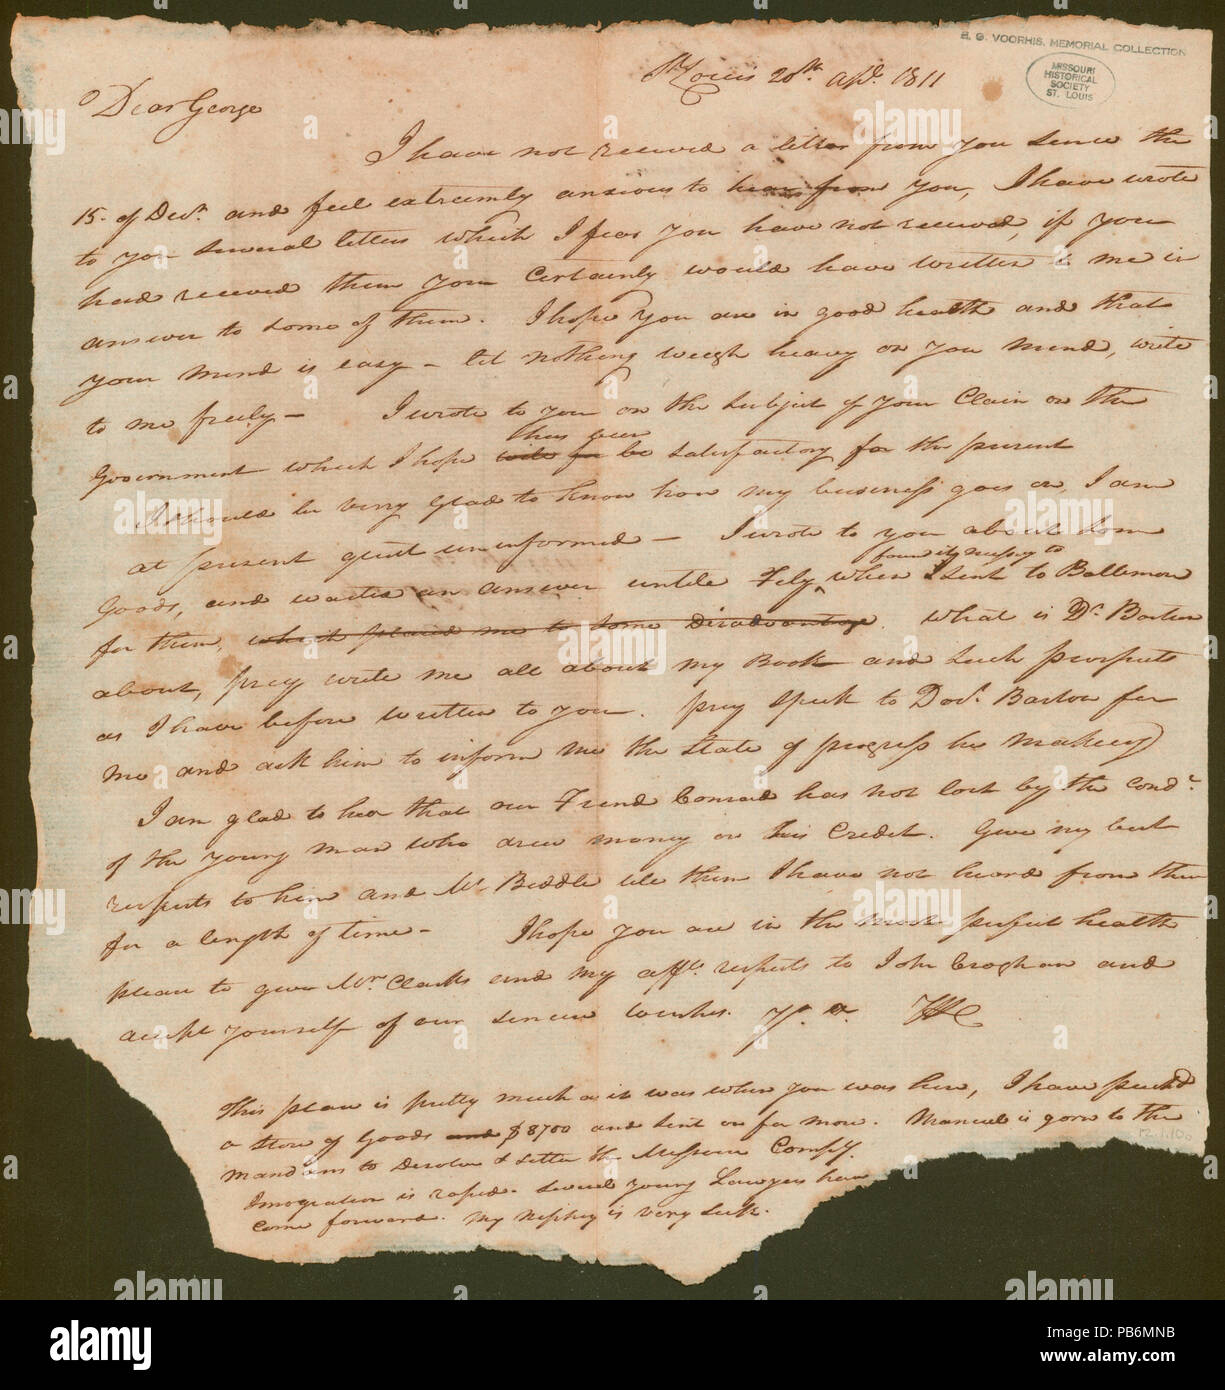 E. G. VOORHIS, MEMORIAL COLLECTION
MISSOURI
HISTORICAL
SOCIETY
ST. LOUIS
St. Louis 20th apl. 1811
Dear George
I have not received a letter from you sence the
15. of Decr. and feel extreemly anxious to hear from you, I have wrote
to you several letters which I fear you have not received, if you
had received them you certainly would have written to me in
answer to some of them. I hope you are in good health and that
your mind is easy – let nothing weigh heavy on you mind, write
to me freely – I wrote to you on the subject of your Claim on the
thes
Government which I hope will be satisfactory for the present
I should be very glad to know how my business goes on, I am
at present quit uninformed – I wrote to you about som
found it necessy to
Goods, and waited an answer untile Feby, when I sent to Baltemore
for them, which placed me to some disadvantage. What is Dr. Barton
about, pray write me all about my Book and such prospects
as I have before written to you. pray speek to Doct. Barton for
me and ask him to inform me the state of progress he makeing
I am glad to hear that our Frend Conrad has not lost by the condt.
of the young man who drew money on his credit. Give my best
respects to him and Mr. Biddle tele them I have not heard from them
for a length of time – I hope you are in the most perfect health
pleas to give Mrs. Clarks and my affts. respects to John Croghan and
accept yourself of our sincere wishes. Yr. &c. WC
This place is pretty much as it was when you was here, I have
a store of Goods and $8700 and sent on for more. Manuel is gorn to the
mandans to desolve & settle the Missouri Compy.
Imegration is raped. several young Lawyers have
come forward. my nephey is very sick.
12.1.10
a
alamy
alamy
Image ID: PB6MNB
www.alamy.com